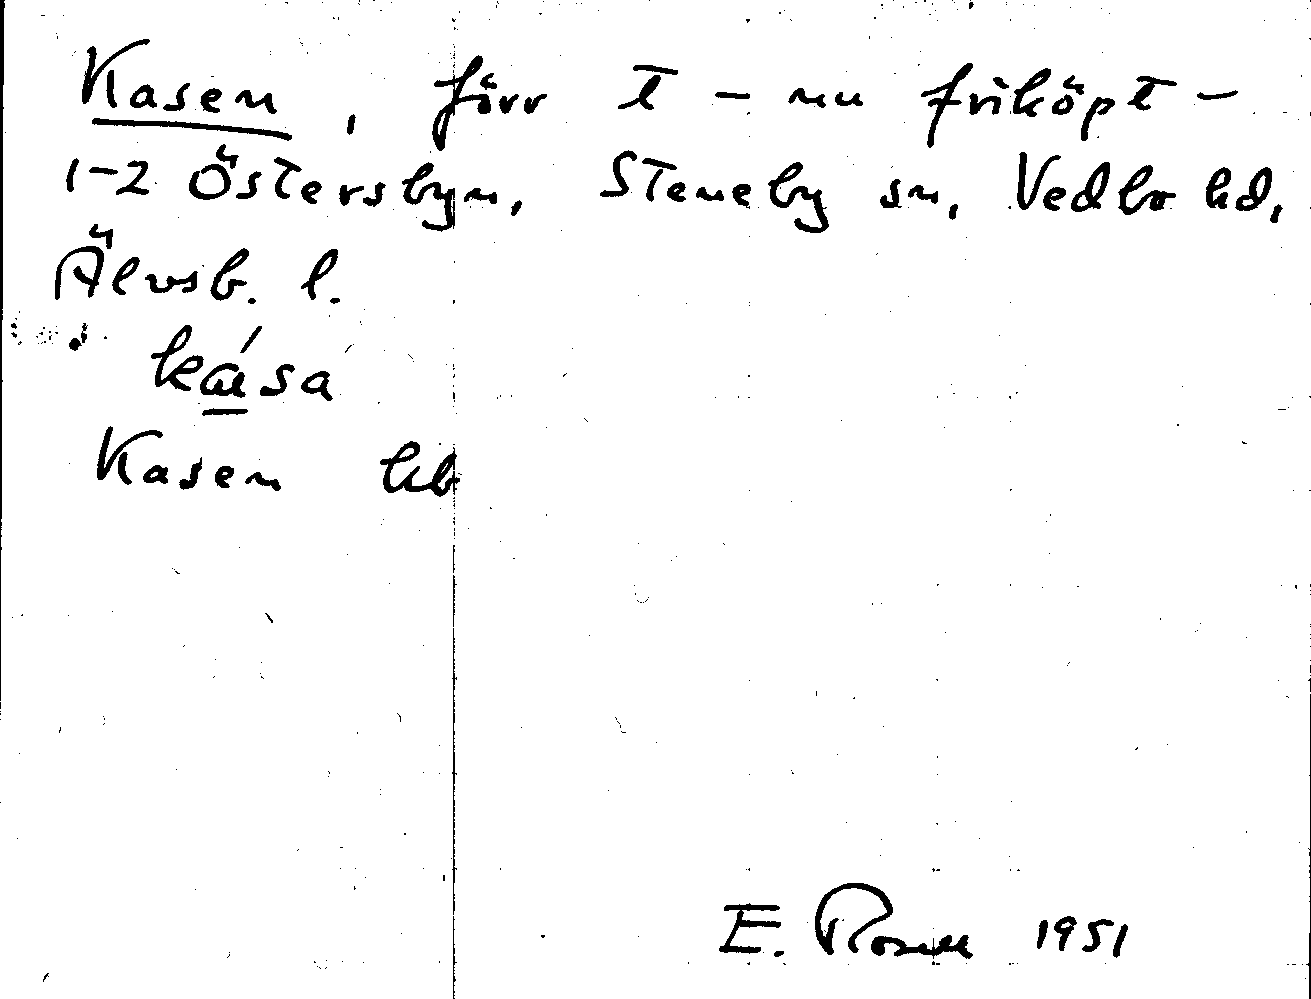 Kasen, förr t - nu friköpt -
1-2 Östersbyn, Steneby sn, Vedbo hd,
Älvsb. l.
ká̱sa
Kasen hb
E. Rosell 1951